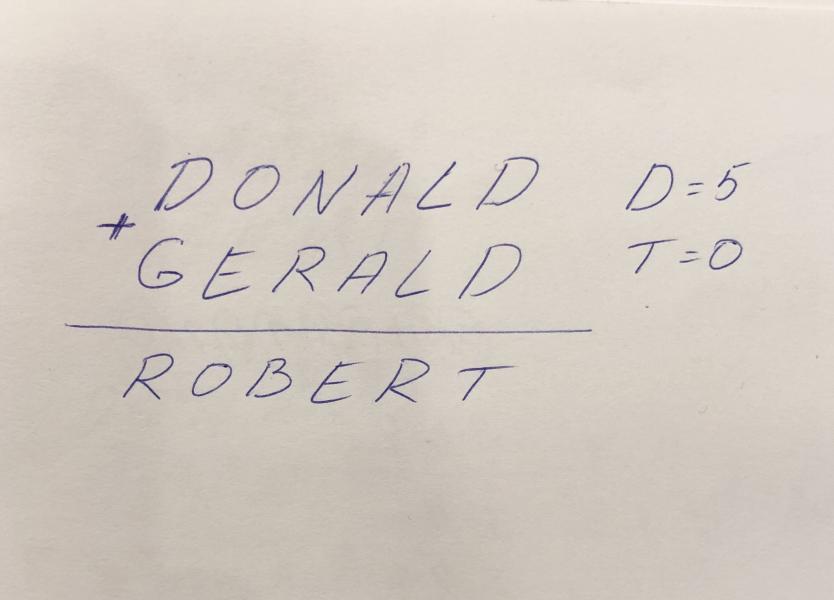 DONALD D=5
+ GERALD T=0
ROBERT